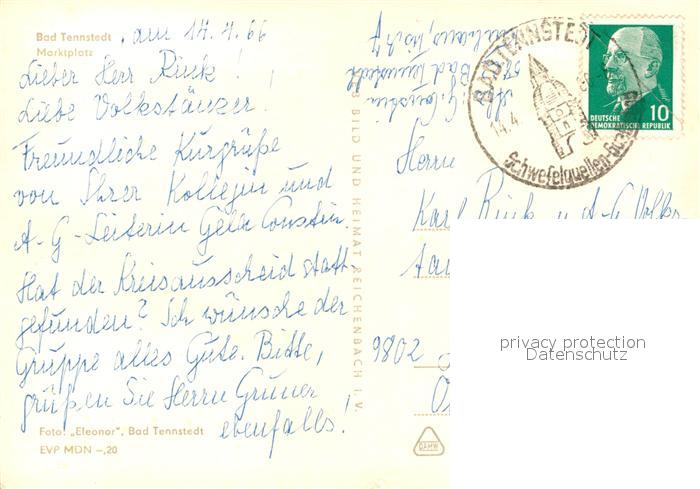 Bad Tennstedt
Marktplatz
, am 14.4.66
Lieber Herr Rink!
Liebe Volkstänzer!
Freundliche Kurgrüße
von Ihrer Kollegin und
A-G-Leiterin
Hat der Kreisausscheid statt-
gefunden? Ich wünsche der
Gruppe alles Gute. Bitte,
grüßen Sie Herrn Gruner
ebenfalls!
Foto: „Eleonor", Bad Tennstedt
EVP MDN –,20
BILD UND HEIMAT REICHENBACH I. V.
Bad Tennstedt
BAD TENNSTEDT
14.4.
Schwefelquellen-
DEUTSCHE
DEMOKRATISCHE REPUBLIK
10
Herrn
Karl Rink u. A-G Volks-
9802
privacy protection
Datenschutz